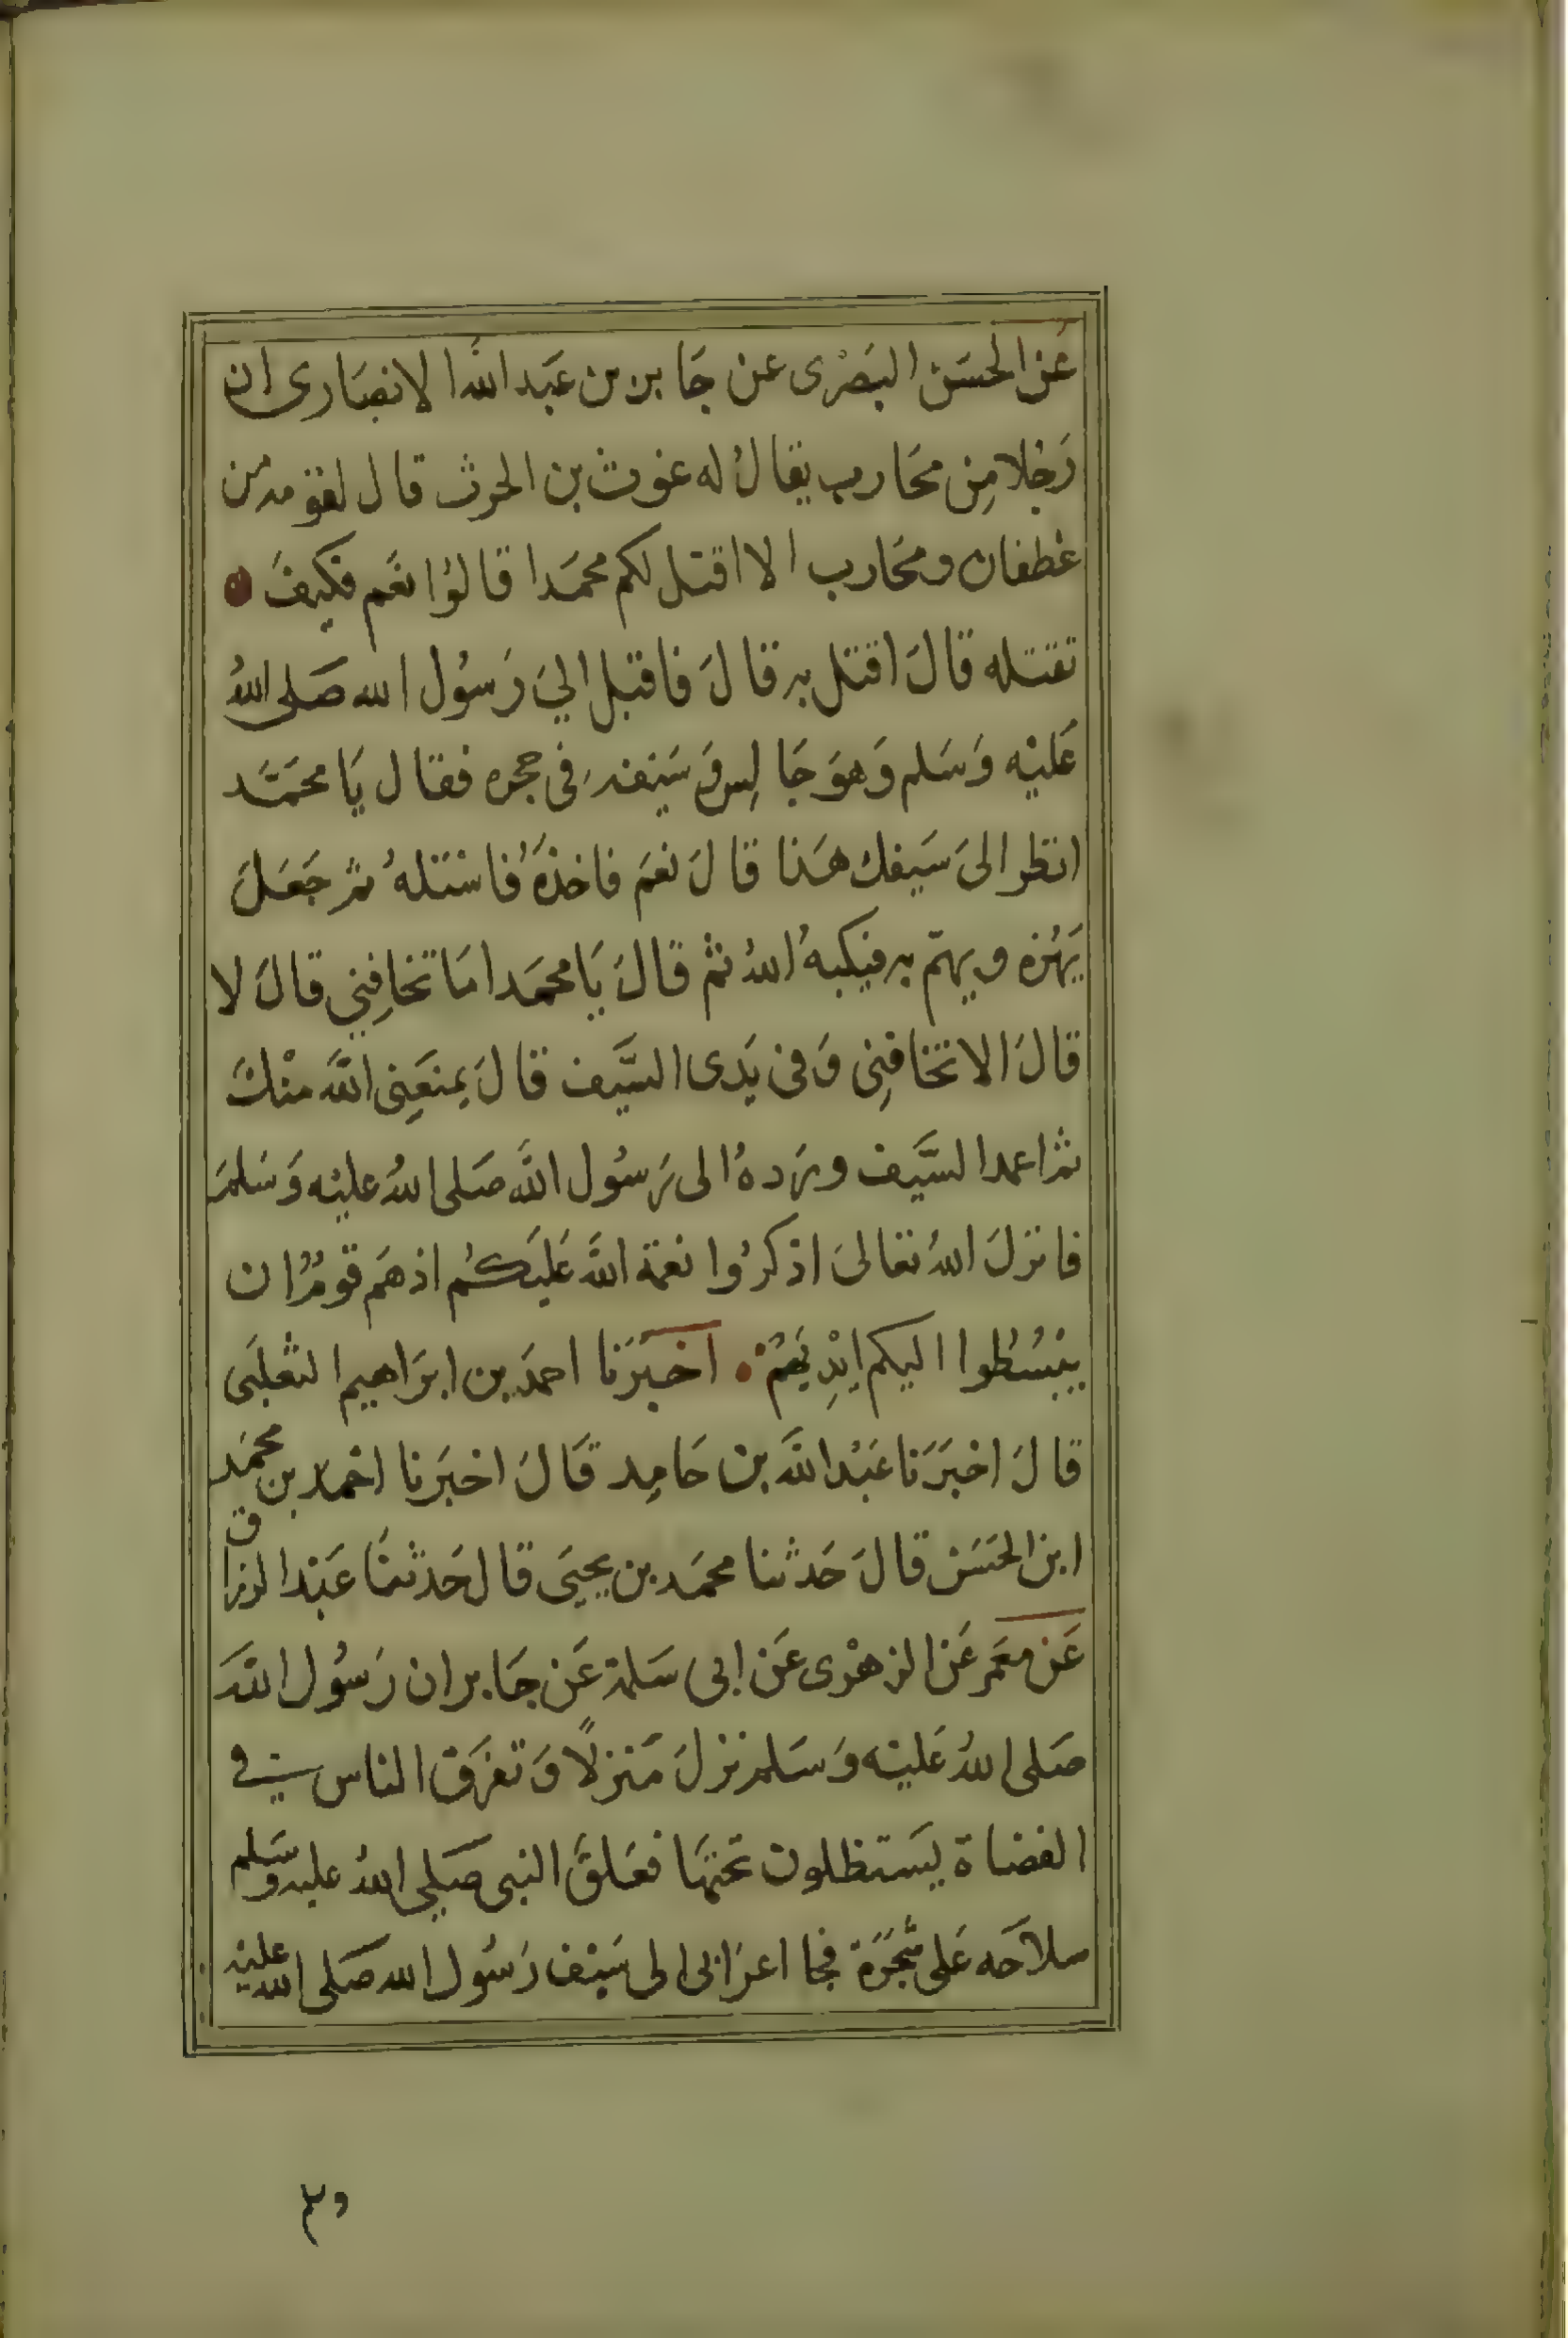 عَن الحسَن البَصْرى عن جَابر بن عَبد اللهِ الانصَارى ان
رَجُلا مِن محَارب يقالُ له غوث بن الحرث قال لقومه من
غطفان ومحَارب الا اقتل لكم محمَدا قالوُا نعَم فكيفَ
تقتله قالَ اقتل به قالَ فاقبل اليَ رَسوُل الله صَلى اللهُ
عَليْه وَسَلم وَهوَ جَالِس وَسَيفه فى حجره فقال يَا محمَّد
انظر الىَ سَيفك هَذا قالَ نعَم فاخذَهُ فاستلهُ ثم جَعَلَ
يَهُزه ويهمّ به فيكبهُ اللهُ ثم قالَ يَا محمَد امَا تخافِني قالَ لا
قالَ الا تخافِنِى وَفى يَدى السَّيف قالَ يمنعَنِى اللهَ منْكَ
ثم اغمد السَّيف وَرَدهُ الى رَسوُل اللهَ صَلى اللهُ عليْه وَسَلمَ
فانزلَ اللهُ تعَالىَ اذكرُوا نعمَة اللهَ عَليَكمُ اذ همَ قومٌ ان
يبْسُطوُا اليكم ايْدِيَهُمْ اخبَرَنا احمَد بن ابرَاهيم الثعلبَى
قالَ اخبَرَنا عَبْد اللهَ بن حَامِد قَالَ اخبَرنا احْمد بن محمَد
ابن الحَسَن قالَ حَدثنا محمَد بن يحيَى قال حَدثنَا عَبْد الرزاق
عَن معَمر عَن الزهْرى عَن ابى سَلمة عَن جَابر ان رَسوُل اللهَ
صَلى اللهُ عَليْه وَسَلم نزلَ مَنزلًا وَتفرَق الناس في
الغضاة يَستظلون تحتهَا فعَلقَ النبى صَلي اللهُ عليه وسَلم
سلاحَه عَلى شجَرَة فجا اعرَابى الى سَيْف رَسُول الله صَلى الله عليْه